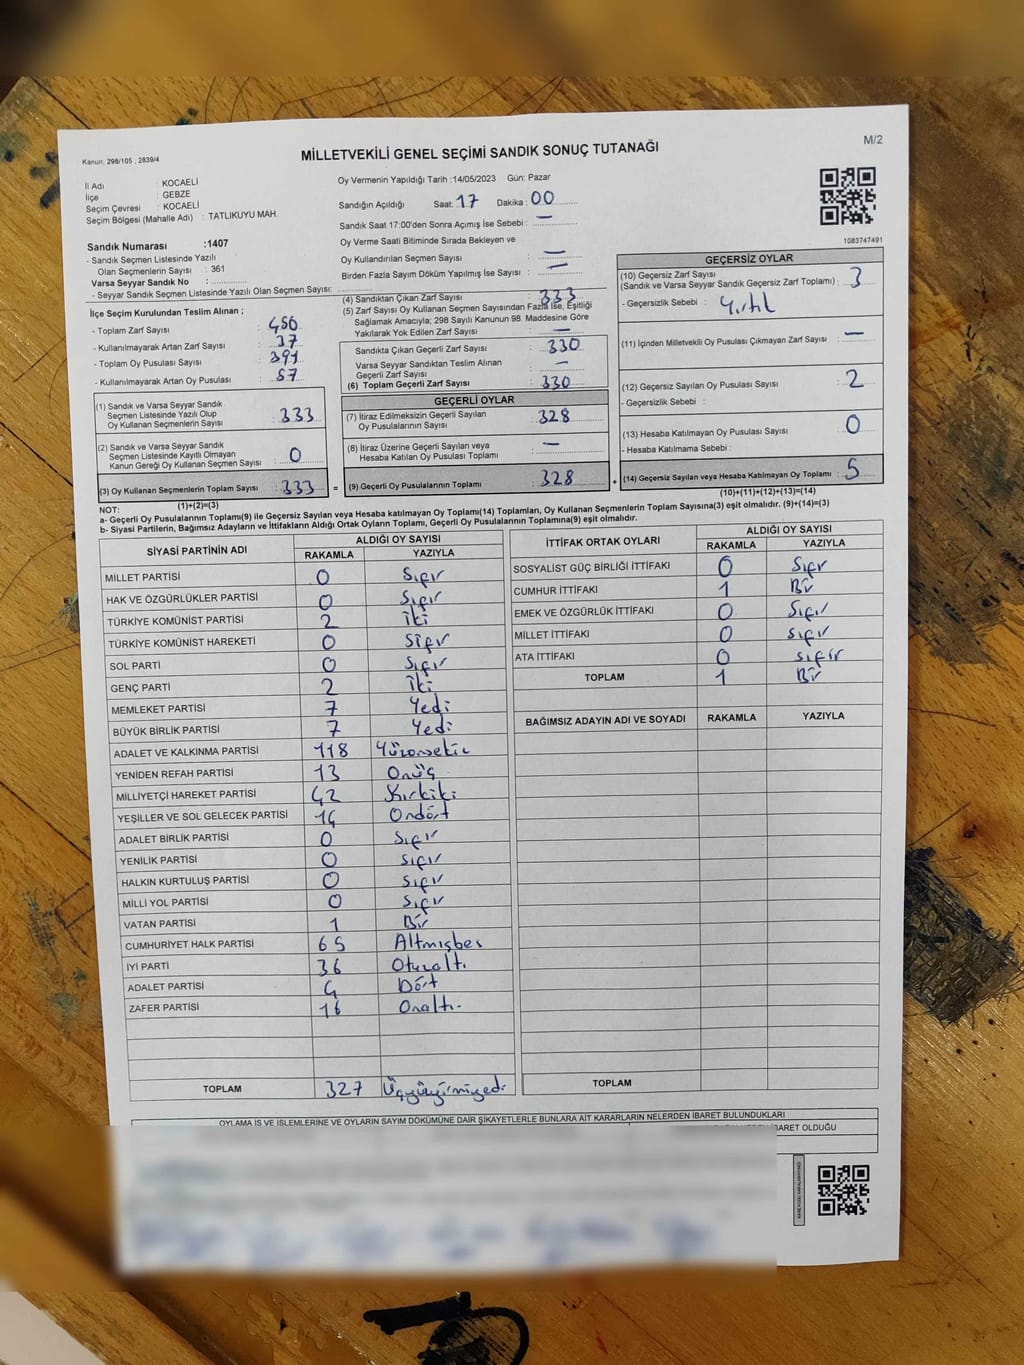 Kanun: 298/105 , 2839/4
MİLLETVEKİLİ GENEL SEÇİMİ SANDIK SONUÇ TUTANAĞI
M/2
İl Adı : KOCAELİ
İlçe : GEBZE
Seçim Çevresi : KOCAELİ
Seçim Bölgesi (Mahalle Adı) : TATLIKUYU MAH.
Sandık Numarası :1407
- Sandık Seçmen Listesinde Yazılı
Olan Seçmenlerin Sayısı : 361
Varsa Seyyar Sandık No :
- Seyyar Sandık Seçmen Listesinde Yazılı Olan Seçmen Sayısı:
Oy Vermenin Yapıldığı Tarih :14/05/2023 Gün: Pazar
Sandığın Açıldığı Saat: 17 Dakika : 00
Sandık Saat 17:00'den Sonra Açımış İse Sebebi : —
Oy Verme Saati Bitiminde Sırada Bekleyen ve
Oy Kullandırılan Seçmen Sayısı : —
Birden Fazla Sayım Döküm Yapılmış İse Sayısı : —
1083747491
İlçe Seçim Kurulundan Teslim Alınan ;
- Toplam Zarf Sayısı : 456
- Kullanılmayarak Artan Zarf Sayısı : 37
- Toplam Oy Pusulası Sayısı : 391
- Kullanılmayarak Artan Oy Pusulası : 57
(1) Sandık ve Varsa Seyyar Sandık
Seçmen Listesinde Yazılı Olup
Oy Kullanan Seçmenlerin Sayısı : 333
(2) Sandık ve Varsa Seyyar Sandık
Seçmen Listesinde Kayıtlı Olmayan
Kanun Gereği Oy Kullanan Seçmen Sayısı : 0
(3) Oy Kullanan Seçmenlerin Toplam Sayısı : 333
(1)+(2)=(3)
(4) Sandıktan Çıkan Zarf Sayısı : 333
(5) Zarf Sayısı Oy Kullanan Seçmen Sayısından Fazla İse, Eşitliği
Sağlamak Amacıyla; 298 Sayılı Kanunun 98. Maddesine Göre
Yakılarak Yok Edilen Zarf Sayısı : —
Sandıkta Çıkan Geçerli Zarf Sayısı : 330
Varsa Seyyar Sandıktan Teslim Alınan
Geçerli Zarf Sayısı : —
(6) Toplam Geçerli Zarf Sayısı : 330
GEÇERLİ OYLAR
(7) İtiraz Edilmeksizin Geçerli Sayılan
Oy Pusulalarının Sayısı : 328
(8) İtiraz Üzerine Geçerli Sayılan veya
Hesaba Katılan Oy Pusulası Toplamı : —
= (9) Geçerli Oy Pusulalarının Toplamı : 328
GEÇERSİZ OYLAR
(10) Geçersiz Zarf Sayısı
(Sandık ve Varsa Seyyar Sandık Geçersiz Zarf Toplamı) : 3
- Geçersizlik Sebebi : Yırtık
(11) İçinden Milletvekili Oy Pusulası Çıkmayan Zarf Sayısı : —
(12) Geçersiz Sayılan Oy Pusulası Sayısı : 2
- Geçersizlik Sebebi :
(13) Hesaba Katılmayan Oy Pusulası Sayısı : 0
- Hesaba Katılmama Sebebi :
+ (14) Geçersiz Sayılan veya Hesaba Katılmayan Oy Toplamı : 5
(10)+(11)+(12)+(13)=(14)
NOT:
a- Geçerli Oy Pusulalarının Toplamı(9) ile Geçersiz veya Hesaba katılmayan Oy Toplamı(14) Toplamları, Oy Kullanan Seçmenlerin Toplam Sayısına(3) eşit olmalıdır. (9)+(14)=(3)
b- Siyasi Partilerin, Bağımsız Adayların ve İttifakların Aldığı Ortak Oyların Toplamı, Geçerli Oy Pusulalarının Toplamına(9) eşit olmalıdır.
SİYASİ PARTİNİN ADI ALDIĞI OY SAYISI
RAKAMLA YAZIYLA
MİLLET PARTİSİ 0 Sıfır
HAK VE ÖZGÜRLÜKLER PARTİSİ 0 Sıfır
TÜRKİYE KOMÜNİST PARTİSİ 2 İki
TÜRKİYE KOMÜNİST HAREKETİ 0 Sıfır
SOL PARTİ 0 Sıfır
GENÇ PARTİ 2 İki
MEMLEKET PARTİSİ 7 Yedi
BÜYÜK BİRLİK PARTİSİ 7 Yedi
ADALET VE KALKINMA PARTİSİ 118 Yüzonsekiz
YENİDEN REFAH PARTİSİ 13 Onüç
MİLLİYETÇİ HAREKET PARTİSİ 42 Kırkiki
YEŞİLLER VE SOL GELECEK PARTİSİ 14 Ondört
ADALET BİRLİK PARTİSİ 0 Sıfır
YENİLİK PARTİSİ 0 Sıfır
HALKIN KURTULUŞ PARTİSİ 0 Sıfır
MİLLİ YOL PARTİSİ 0 Sıfır
VATAN PARTİSİ 1 Bir
CUMHURİYET HALK PARTİSİ 65 Altmışbeş
İYİ PARTİ 36 Otuzaltı
ADALET PARTİSİ 4 Dört
ZAFER PARTİSİ 16 Onaltı
TOPLAM 327 Üçyüzyirmiyedi
İTTİFAK ORTAK OYLARI ALDIĞI OY SAYISI
RAKAMLA YAZIYLA
SOSYALİST GÜÇ BİRLİĞİ İTTİFAKI 0 Sıfır
CUMHUR İTTİFAKI 1 Bir
EMEK VE ÖZGÜRLÜK İTTİFAKI 0 Sıfır
MİLLET İTTİFAKI 0 Sıfır
ATA İTTİFAKI 0 Sıfır
TOPLAM 1 Bir
BAĞIMSIZ ADAYIN ADI VE SOYADI RAKAMLA YAZIYLA
TOPLAM
OYLAMA İŞ VE İŞLEMLERİNE VE OYLARIN SAYIM DÖKÜMÜNE DAİR ŞİKAYETLERLE BUNLARA AİT KARARLARIN NELERDEN İBARET BULUNDUKLARI
İBARET OLDUĞU